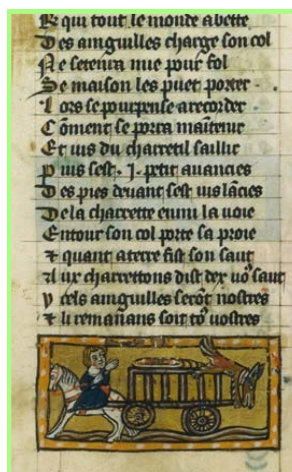 R qui tout le monde abette
Des anguilles charge son col
Ne se tenra mie pour fol
Se maison les puet porter .
Lors se pourpense a recorder
Cōment se porra maītenir
Et uis du charretil saillir
Puis sest . j . petit auancies
Des pies deuant sest uis lācies
De la charrette enmi la uoie
Entour son col porte sa proie
⁊ quant a terre fist son saut
Aux charretons dist dex uo⁹ saut
y cels anguilles serōt nostres
⁊ li remanans soit to⁹ uostres